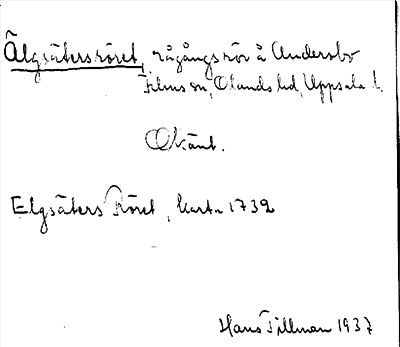 Älgsätersröret, rågångsrör å Andersbo
Films sn, Olands hd, Uppsala l.
Okänt.
Elgsäters Röret, karta 1739
Hans Tillman 1937